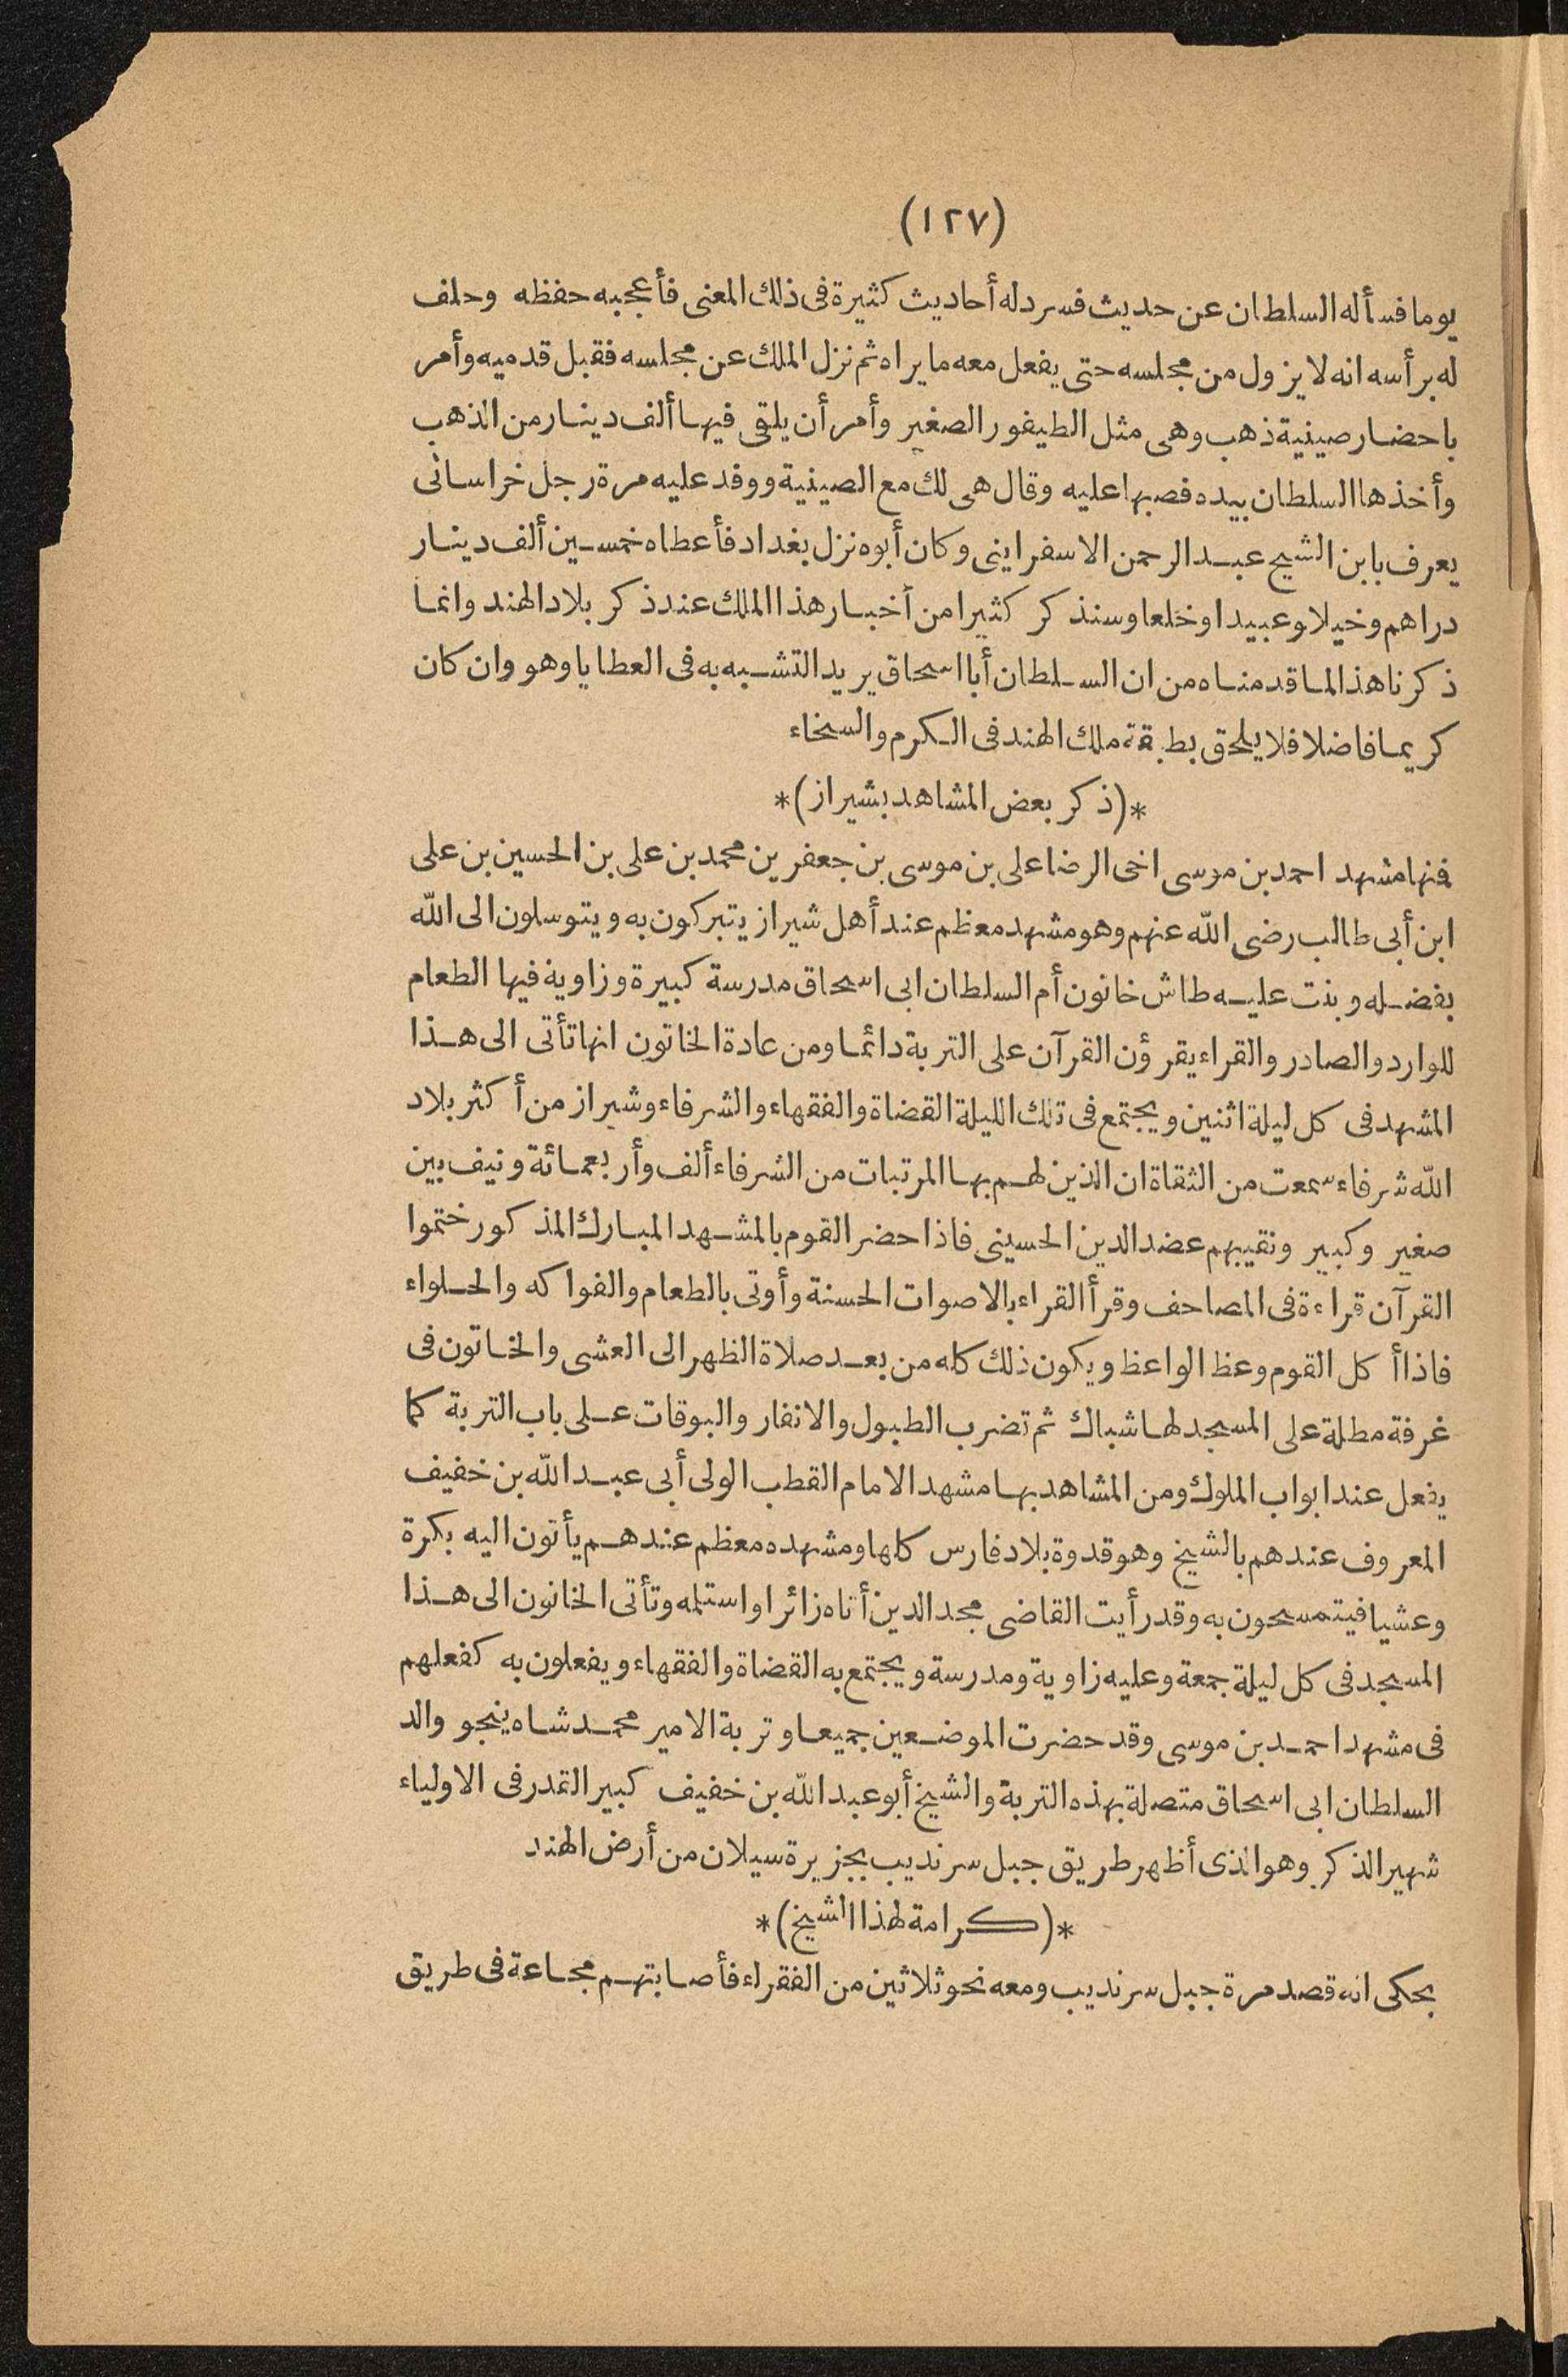 (١٢٧)
يوما فسأله السلطان عن حديث فسرد له أحاديث كثيرة فى ذلك المعنى فأعجبه حفظه وحلف
له برأسه انه لا يزول من مجلسه حتى يفعل معه ما يراه ثم نزل الملك عن مجلسه فقبل قدميه وأمر
باحضار صينية ذهب وهى مثل الطيفور الصغير وأمر أن يلقى فيها ألف دينار من الذهب
وأخذها السلطان بيده فصبها عليه وقال هى لك مع الصينية ووفد عليه مرة رجل خراسانى
يعرف بابن الشيح عبد الرحمن الاسفراينى وكان أبوه نزل بغداد فأعطاه خمسين ألف دينار
دراهم وخيلا وعبيدا وخلعا وسنذكر كثيرا من أخبار هذا الملك عند ذكر بلاد الهند وانما
ذكرنا هذا لما قدمناه من ان السلطان أبا اسحاق يريد التشبه به فى العطايا وهو وان كان
كريما فاضلا فلا يلحق بطبقة ملك الهند فى الكرم والسخاء
*(ذكر بعض المشاهد بشيراز)*
فنها مشهد احمد بن موسى اخى الرضا على بن موسى بن جعفر بن محمد بن على بن الحسين بن على
ابن أبى طالب رضى الله عنهم وهو مشهد معظم عند أهل شيراز يتبركون به ويتوسلون الى الله
بفضله وبنت عليه طاش خاتون أم السلطان ابى اسحاق مدرسة كبيرة وزاوية فيها الطعام
للوارد والصادر والقراء يقرؤن القرآن على التربة دائما ومن عادة الخاتون انها تأتى الى هذا
المشهد فى كل ليلة اثنين ويجتمع فى تلك الليلة القضاة والفقهاء والشرفاء وشيراز من أكثر بلاد
الله شرفاء سمعت من الثقاة ان الذين لهم بها المرتبات من الشرفاء ألف وأربعمائة ونيف بين
صغير وكبير ونقيبهم عضد الدين الحسينى فاذا حضر القوم بالمشهد المبارك المذكور ختموا
القرآن قراءة فى المصاحف وقرأ القراء بالاصوات الحسنة وأوتى بالطعام والفواكه والحلواء
فاذا أكل القوم وعظ الواعظ ويكون ذلك كله من بعد صلاة الظهر الى العشى والخاتون فى
غرفة مطلة على المسجد لها شباك ثم تضرب الطبول والانفار والبوقات على باب التربة كما
يفعل عند ابواب الملوك ومن المشاهد بها مشهد الامام القطب الولى أبى عبد الله بن خفيف
المعروف عندهم بالشيخ وهو قدوة بلاد فارس كلها ومشهده معظم عندهم يأتون اليه بكرة
وعشيا فيتمسحون به وقد رأيت القاضى مجد الدين أتاه زائرا واستلمه وتأتى الخاتون الى هذا
المسجد فى كل ليلة جمعة وعليه زاوية ومدرسة ويجتمع به القضاة والفقهاء ويفعلون به كفعلهم
فى مشهد احمد بن موسى وقد حضرت الموضعين جميعا وتربة الامير محمد شاه ينجو والد
السلطان ابى اسحاق متصلة بهذه التربة والشيخ أبو عبد الله بن خفيف كبير القدر فى الاولياء
شهير الذكر وهو الذى أظهر طريق جبل سرنديب بجزيرة سيلان من أرض الهند
*(كرامة لهذا الشيخ)*
يحكى انه قصد مرة جبل سرنديب ومعه نحو ثلاثين من الفقراء فأصابتهم مجاعة فى طريق